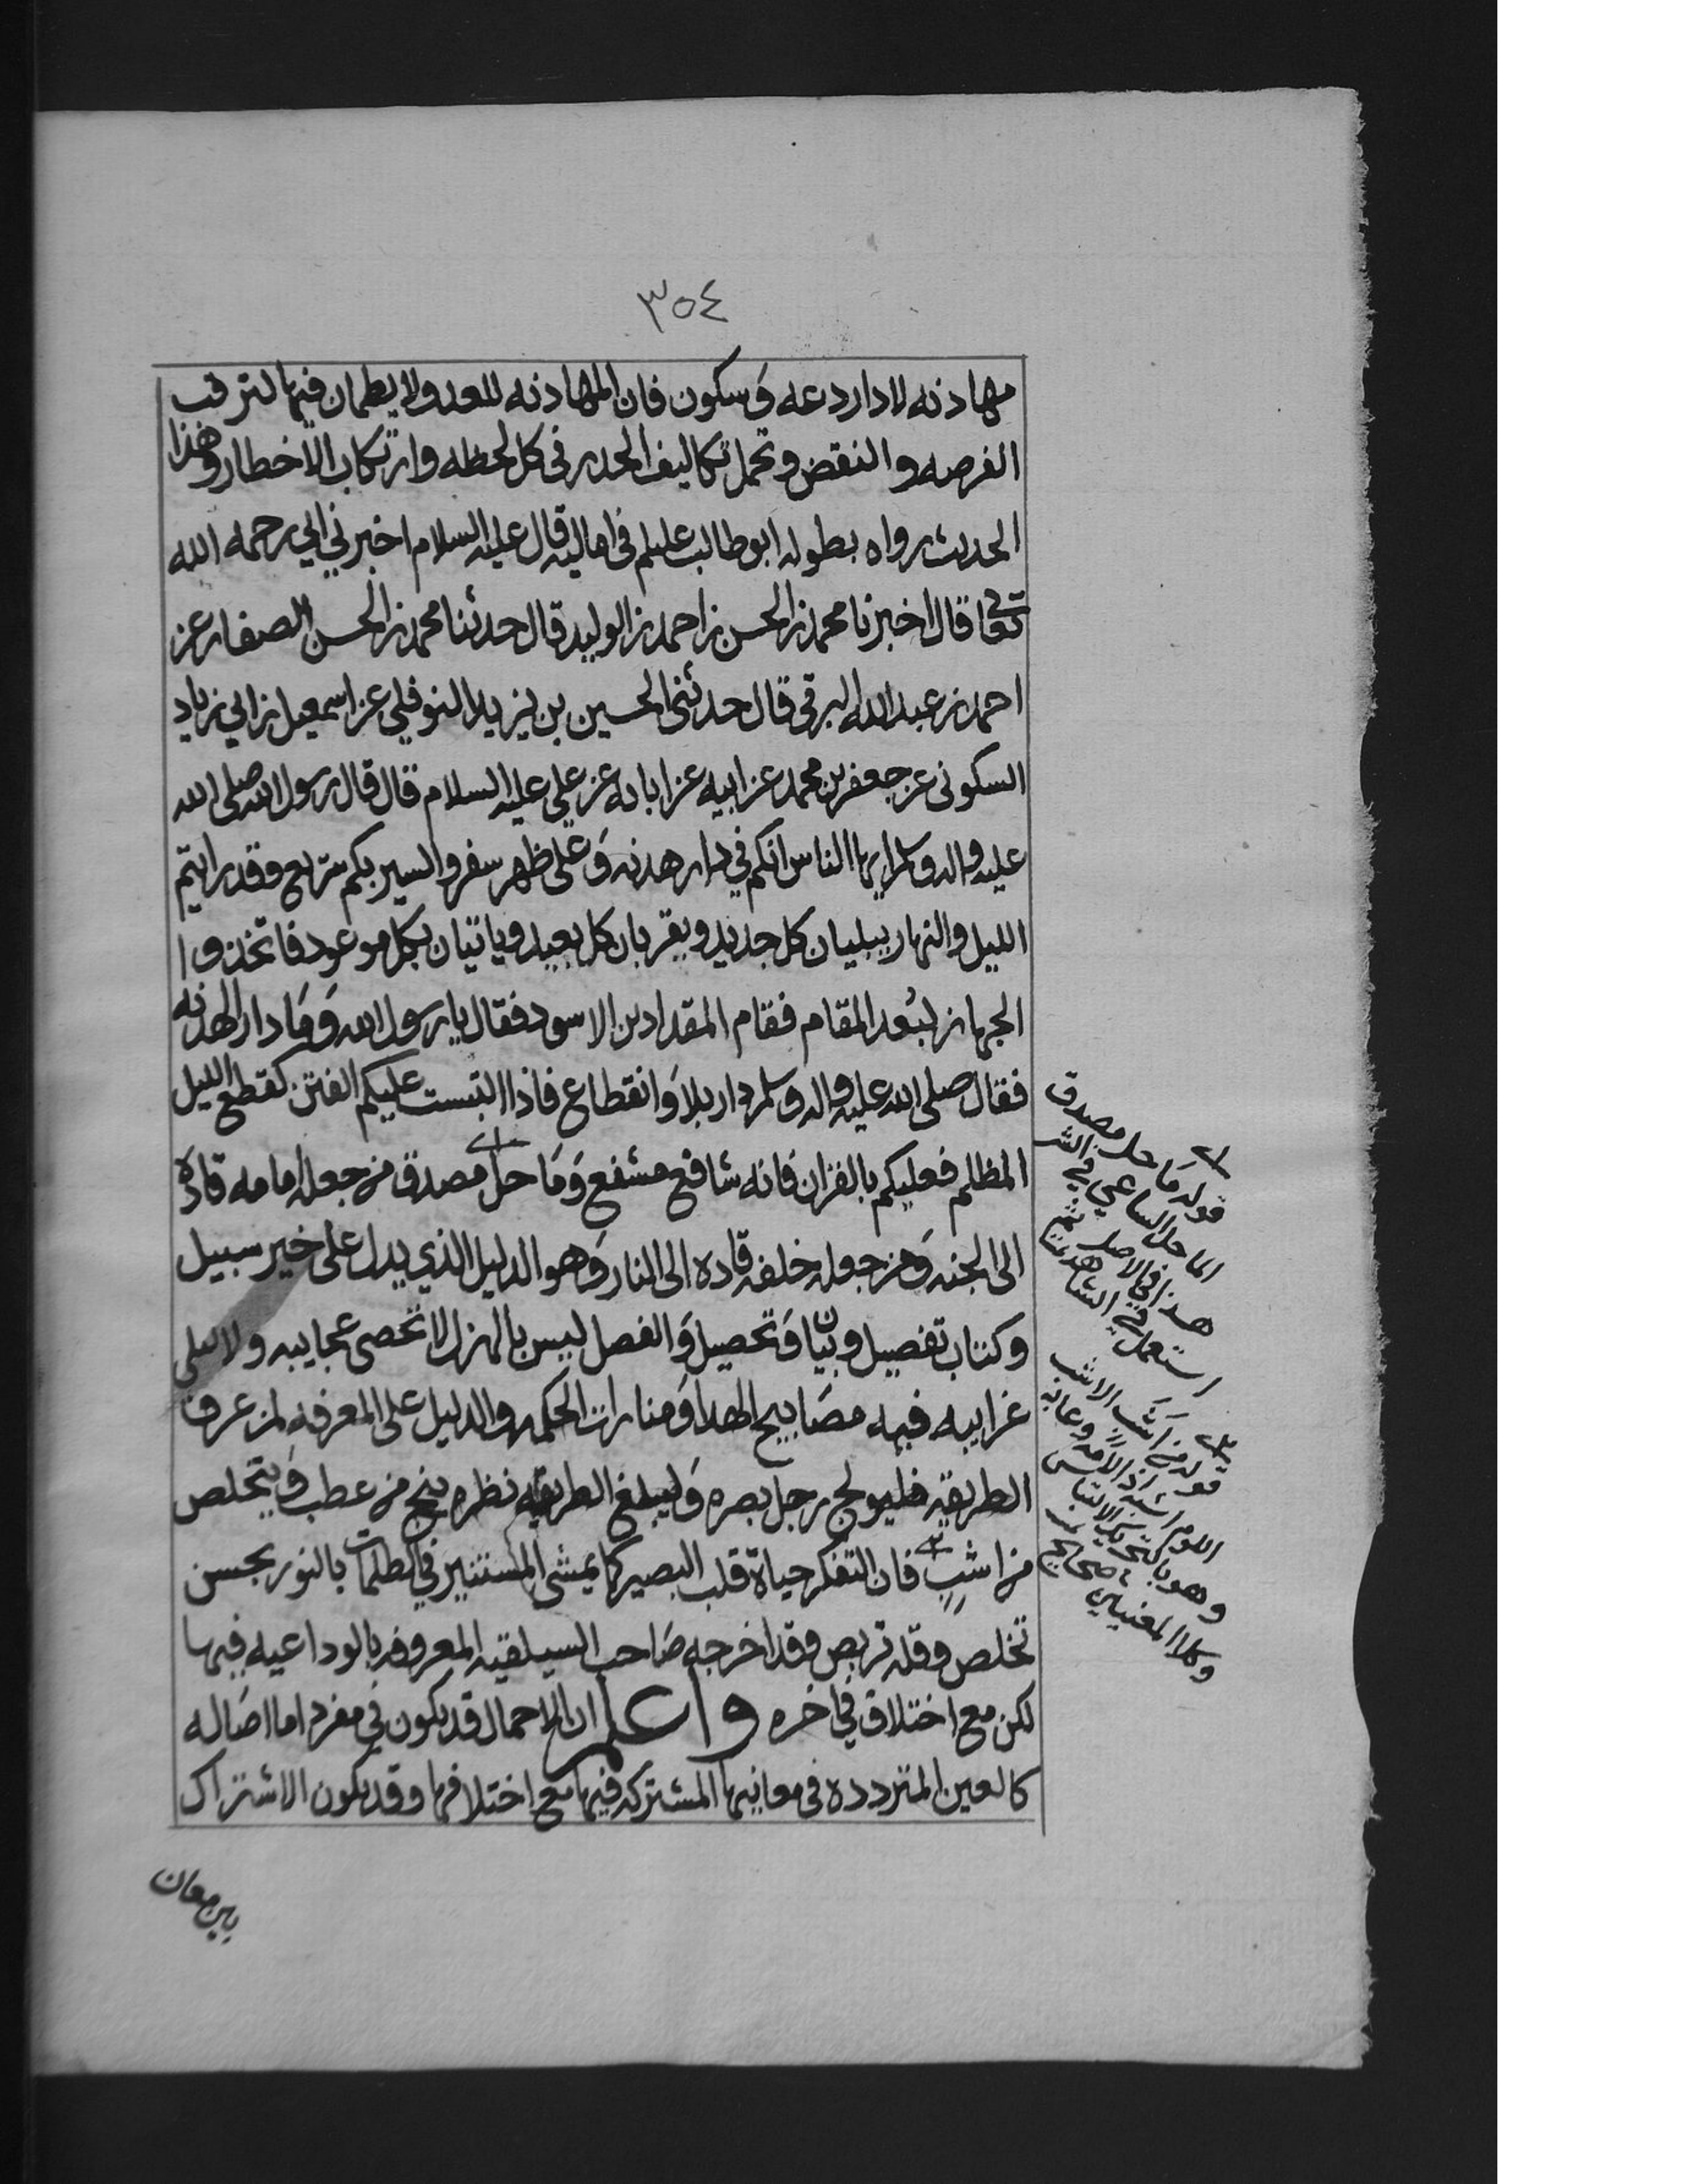 ٣٥٤
مهادنه لا دار دعه وسكون فان المهادنه للعدو لا يطمان فيها لترقب
الفرصه والنقض وتحمل تكاليف الحدر في كل لحظه وارتكاب الاخطار وهذا
الحديث رواه بطوله ابو طالب عليلم في اماليه قال عليه السلام اخبرني ابي رحمه الله
تعا قال اخبرنا محمد بن الحسن بن احمد بن الوليد قال حدثنا محمد بن الحسن الصفار عن
احمد بن عبدالله البرقي قال حدثني الحسين بن يزيد النوفلي عن اسمعيل بن ابي زياد
السكوني عن جعفر بن محمد عن ابيه عن ابائه عن علي عليه السلام قال قال رسول الله صلى الله
عليه واله وسلم ايها الناس انكم في دار هدنه وعلى ظهر سفر والسير بكم سريع وقد رايتم
الليل والنهار يبليان كل جديد ويقربان كل بعيد وياتيان بكل موعود فاتخذوا
الجهاز لبُعد المقام فقام المقداد بن الاسود فقال يا رسول الله وما دار الهدنه
فقال صلى الله عليه واله وسلم دار بلا وانقطاع فاذا التبست عليكم الفتن كقطع الليل
المظلم فعليكم بالقران فانه شافع مشفع وماحل مصدق من جعله امامه قاده
الى الجنه ومن جعله خلفه قاده الى النار وهو الدليل الذي يدل على خير سبيل
وكتاب تفصيل وبيان وتحصيل والفصل ليس بالهزل لا تحصى عجايبه ولا تبلى
غرايبه فيه مصابيح الهدا ومنارات الحكمه والدليل على المعرفه لمن عرف
الطريقه فليولج رجل بصره وليبلغ الطريقه نظره ينج من عطب ويتخلص
من اشب فان التفكر حياة قلب البصير كما يمشي المستنير في الظلمات بالنور بحسن
تخلص وقله تربص وقد اخرجه صاحب السيلقيه المعروفه بالوداعيه فيها
لكن مع اختلاق في اخره واعلم ان الاحمال قد يكون في مفرد اما اصاله
كالعين المتردده في معانيها المشتركه فيها مع اختلافها وقد يكون الاشتراك
بين معان
قوله ماحل مصدق
الماحل الساعي في الشر
هذا في الاصل ثم
استعمل في الشاهد
قوله من اشب الاشب
وهو بالتحريك الالتباس
وكلا المعنيين